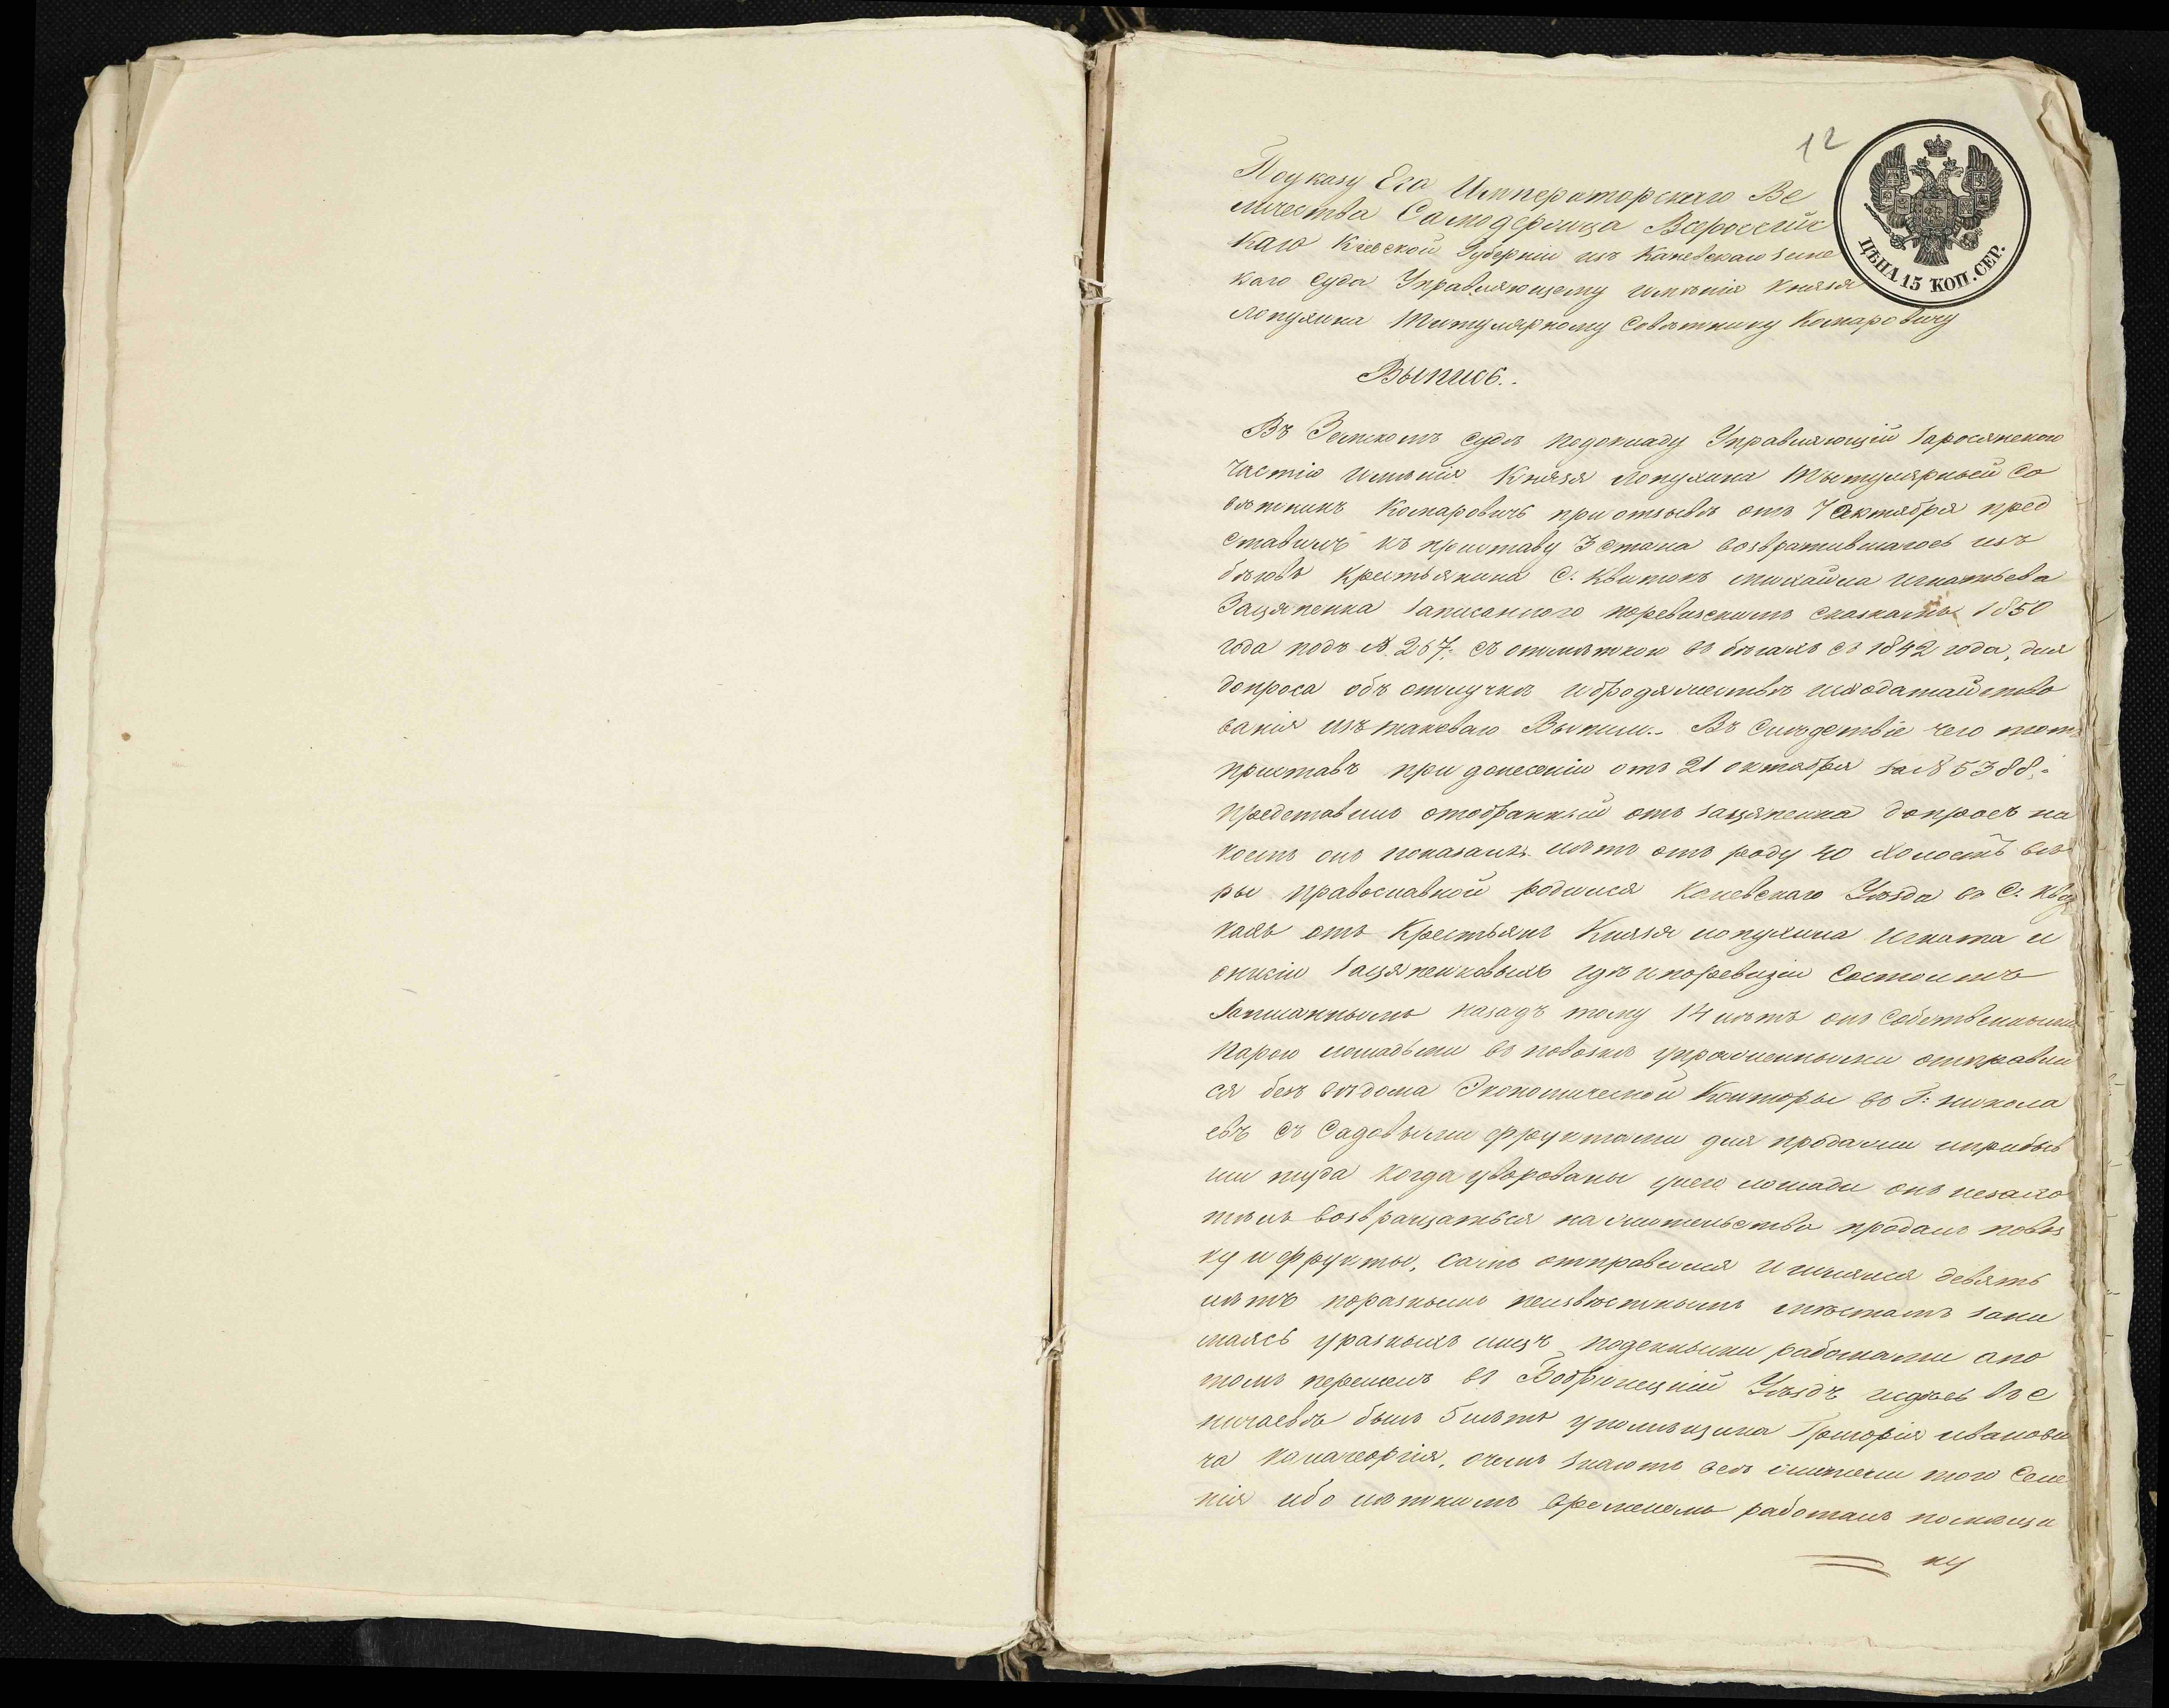 12
ЦѢНА 15 КОП. СЕР.
Поуказу Его Императорскаго Ве
личества Самодержца Всероссійс
каго Кіевской Губерніи изъ Каневскаго Земс
каго Суда Управляющему имѣнія Князя
Лопухина Титулярному Совѣтнику Комаровичу
Выпись.
Въ Земскомъ Судѣ подокладу Управляющій Заросянскою
Частію имѣнія Князя Лопухина Титулярный Со
вѣтникъ Комаровичъ при отзывѣ отъ 7 Октября пред
ставилъ къ приставу 3 Стана возвратившагось изъ
бѣговъ Крестьянина С. Квитокъ михайла игнатьева
Зацяпенка записанного поревизскимъ сказкамъ 1850
года подъ № 267. съ отмѣткою въ бѣгахъ съ 1842 года, для
допроса объ отлучкѣ ибродяжествѣ иходатайство
ванія изъ таковаго Выписи. Въ Слѣдствіе чего тотъ
приставъ при донесеніи отъ 21 октября за № 5388.
представилъ отобранный отъ зацяпенка допросъ на
коемъ онъ показалъ лѣтъ отъ роду 40 холостъ вѣ
ры православной родился Каневскаго Уѣзда въ С.
кахъ отъ Крестьянъ Князя лопухина игната и
зацяпенковыхъ гдѣ и поревизіи Состоитъ
Записаннымъ назадъ тому 14 лѣтъ онъ Собственными
парою лошадьми въ повозкѣ упряженными отправил
ся безъ вѣдома Экономической Конторы въ Г: никола
евъ съ Садовыми фруктами для продажи иприбыв
ши туда когда уворованы унего лошади онъ незахо
тѣлъ возвращаться на жительство продалъ повоз
ку и фрукты, Самъ отправился и шлялся девять
лѣтъ поразнымъ неизвѣстнымъ мѣстамъ зани
маясь уразныхъ лицъ поденными работами апо
томъ перешелъ въ Бобринецкій Уѣздъ издѣсь въ с
былъ 5 лѣтъ упомѣщика Григорія иванови
ча очемъ знаютъ всѣ жители того Селе
нія ибо лѣтнимъ временемъ работалъ помѣщи
ку